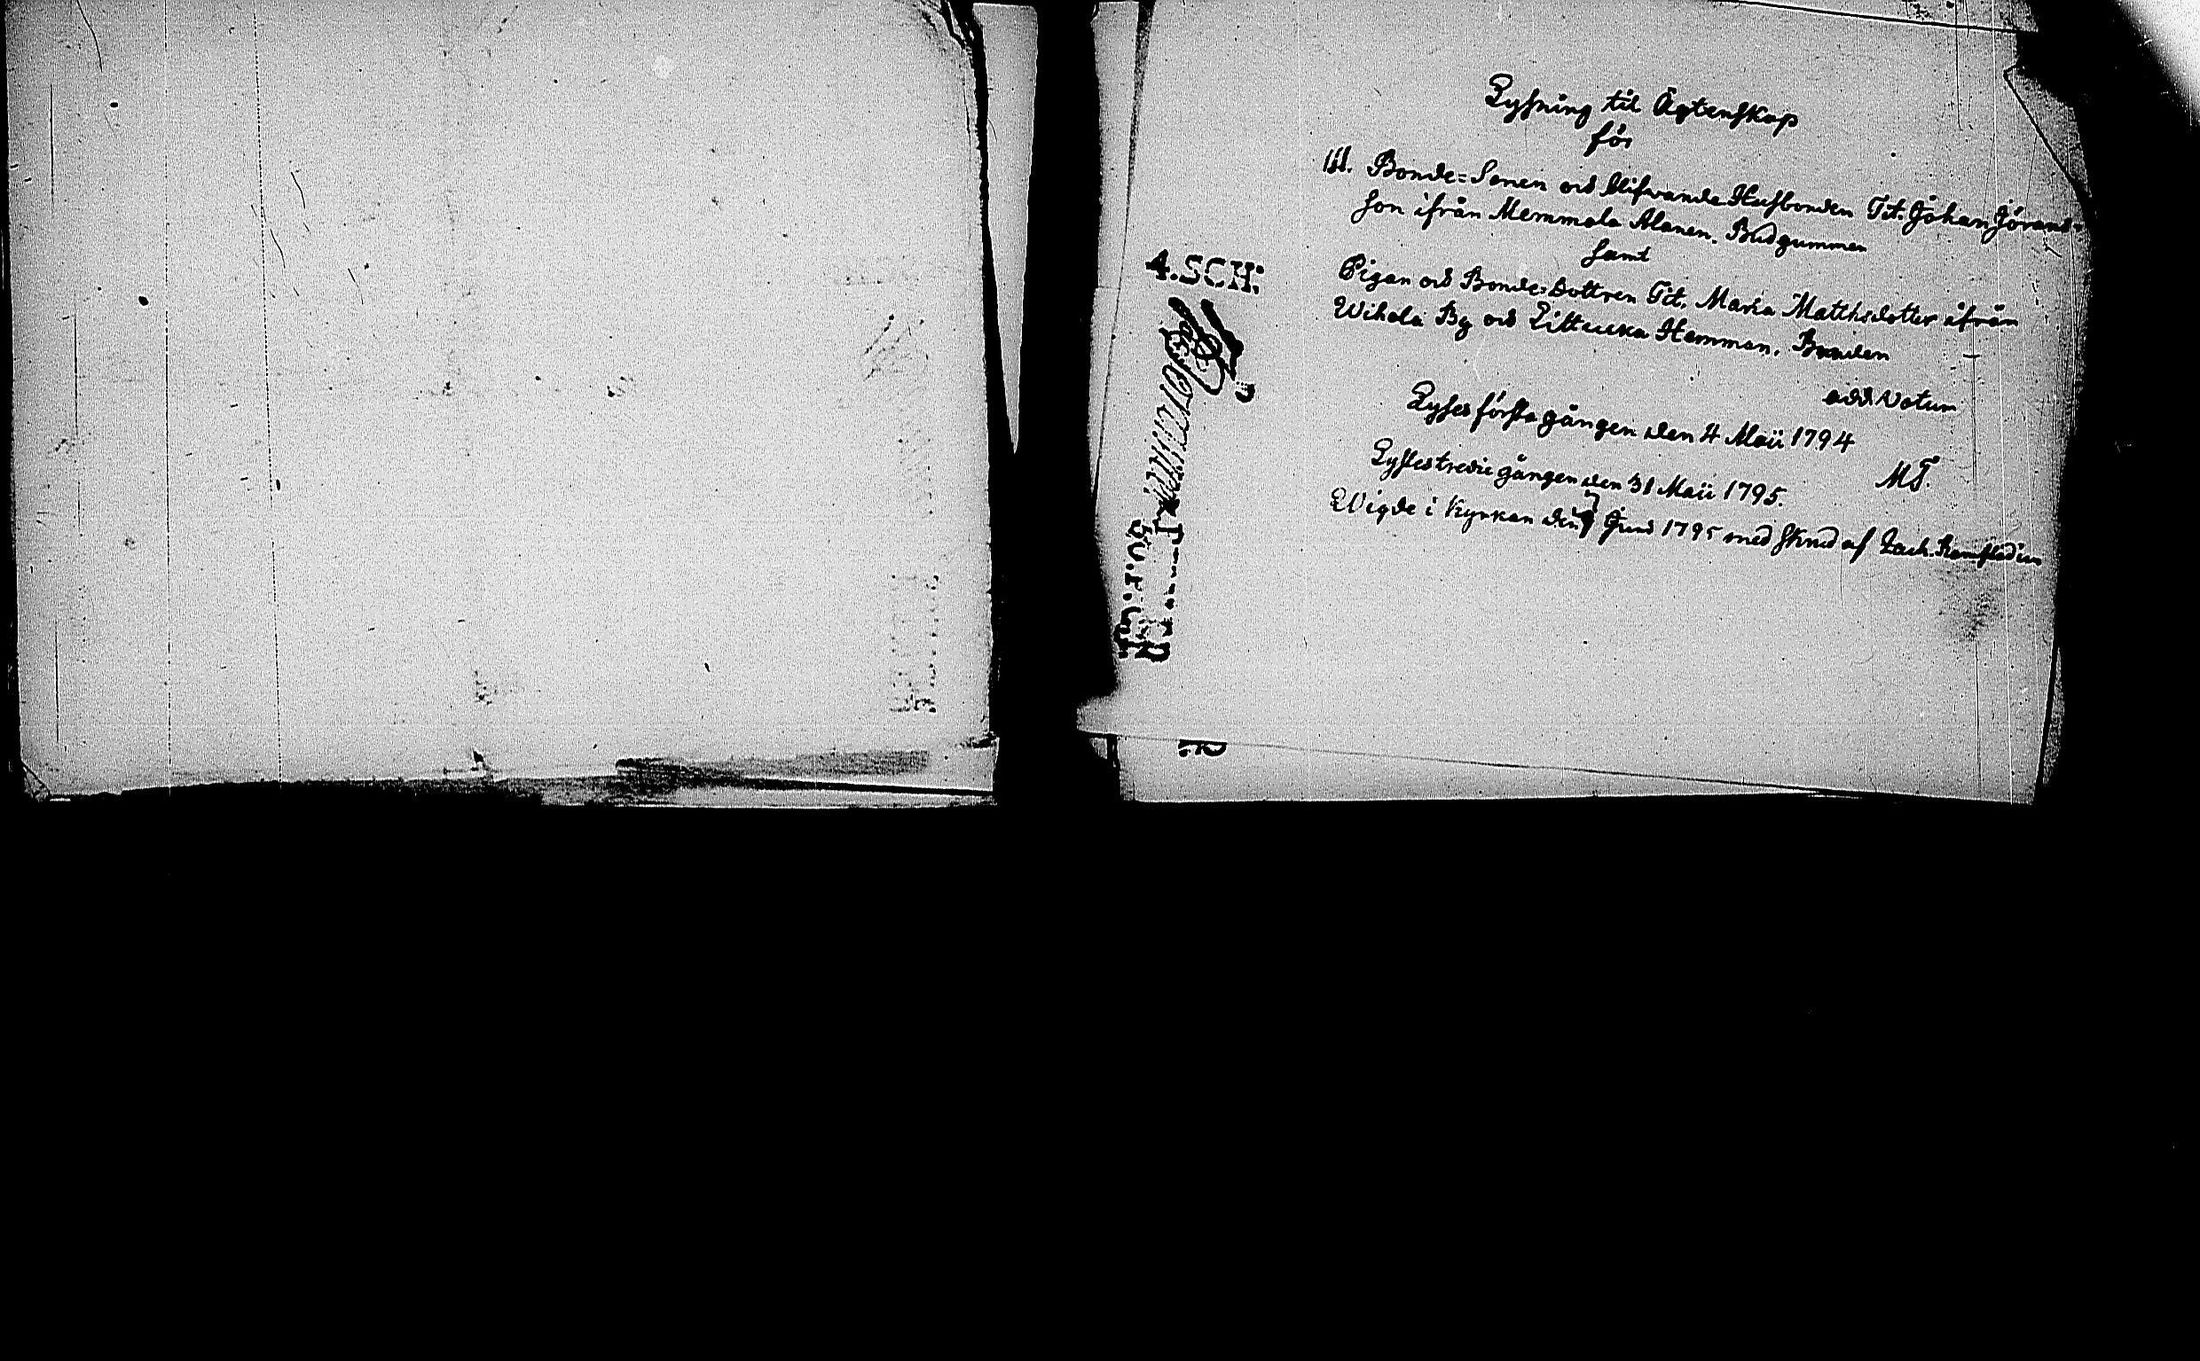 Lysning til Ägtenskap
för
Bonde=Sonen och blifvande Husbonden Tit. Johan Jörans=
son ifrån Memmala Alanen, Brudgummen
samt
Pigan och Bonde=Dottren Tit. Maria Matthsdotter ifrån
Wihola By och Littuka Hemman, Bruden
Lystes första gången den 4 Maii 1794
Lystes tredie gången den 31 Maii 1795.
Wigde i Kyrkan den 7 Junii 1795 med af Zach.
4.SCH: